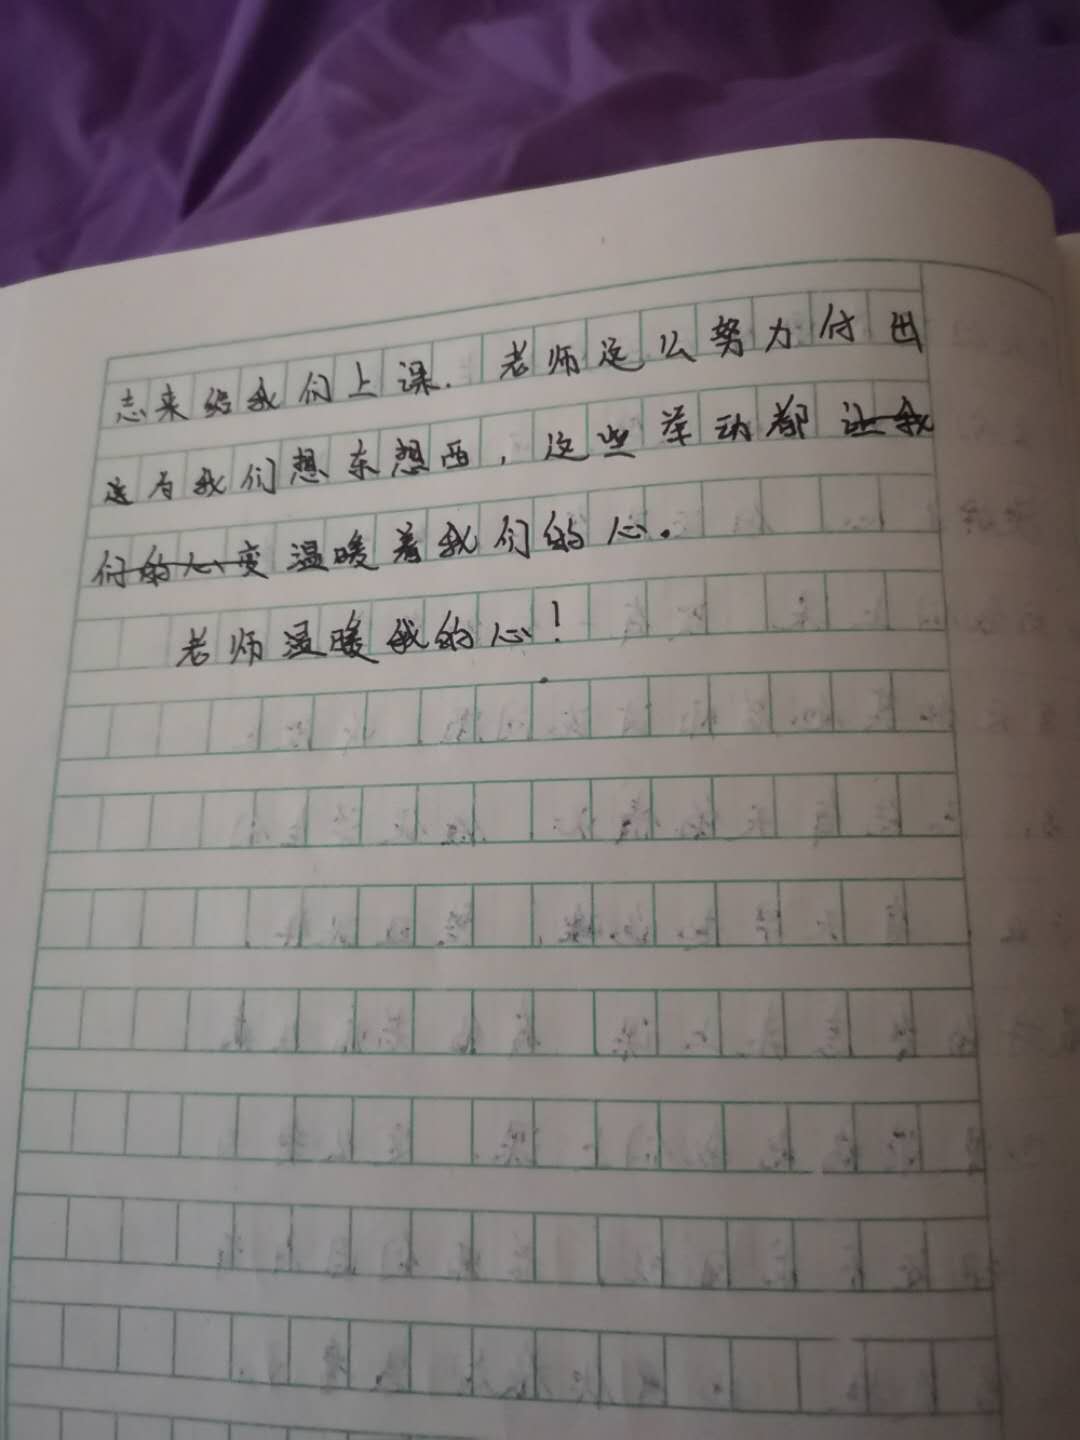 志来给我们上课.老师这么努力付出
这为我们想东想西,这些举动都让我
们的心变温暖着我们的心。
老师温暖我的心!